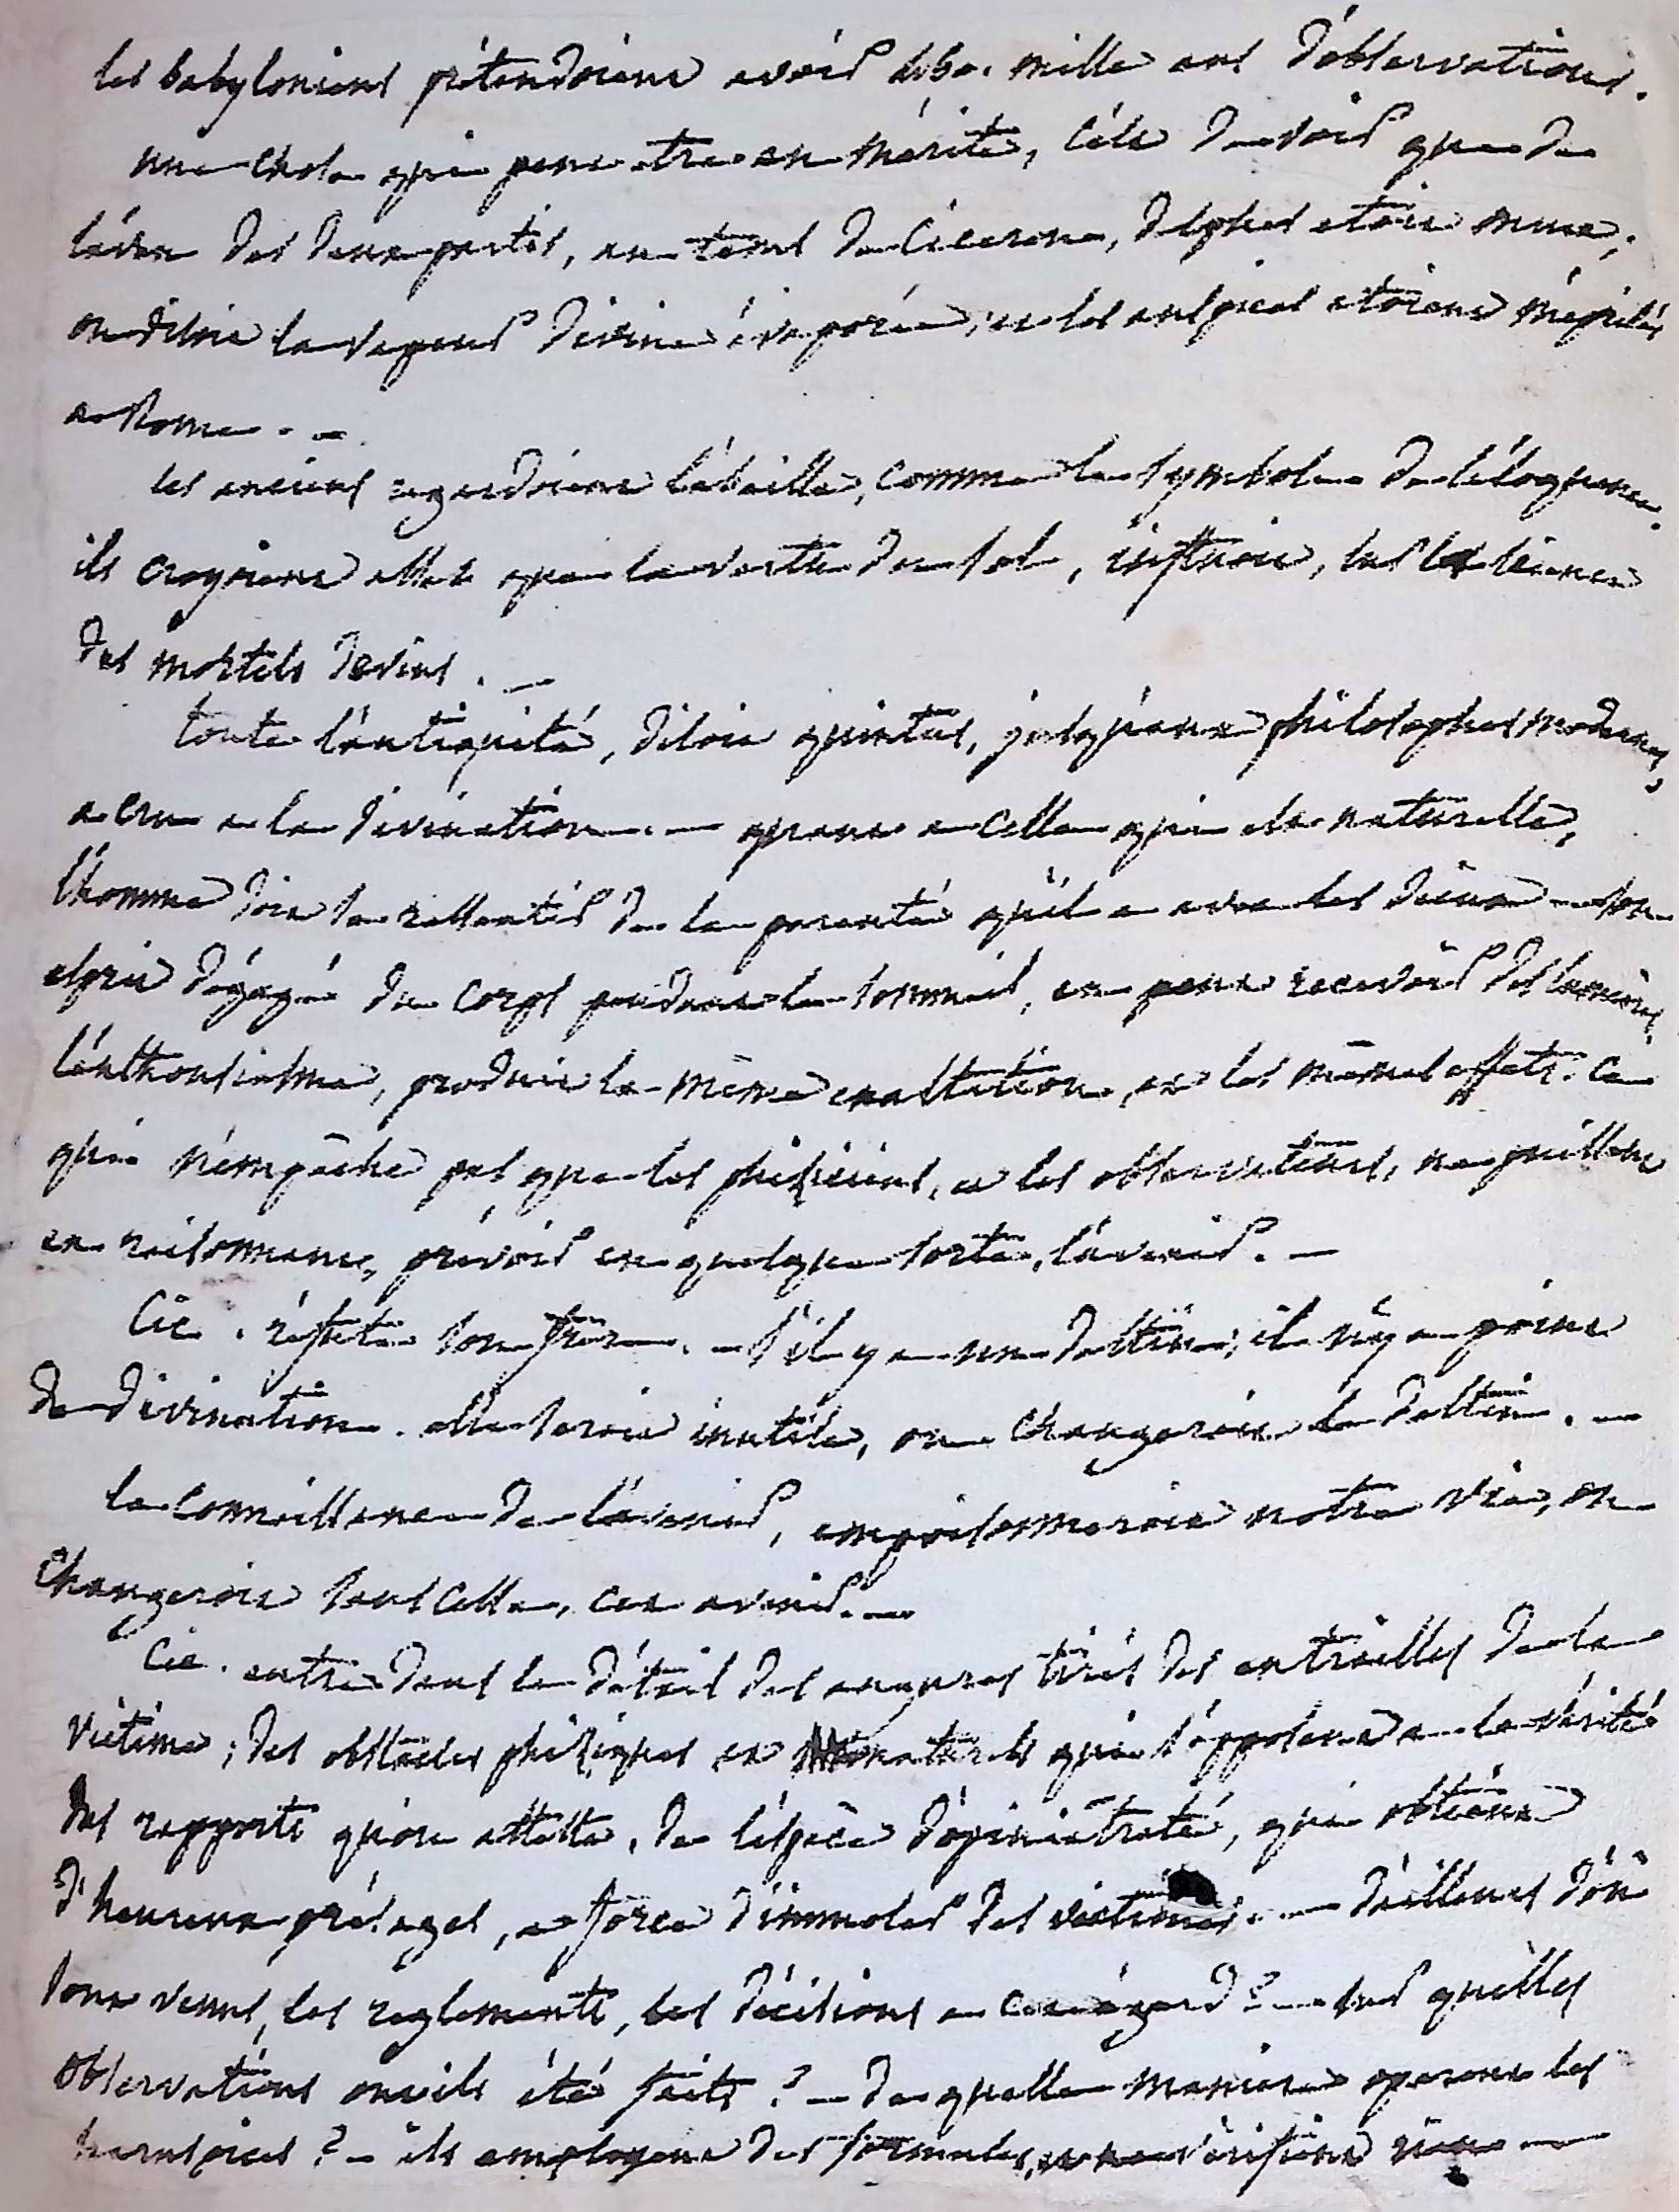 les babyloniens prétendoient avoir 480. mille ans d'observations.
une chose qui peut etre en mérite, c'est de voir que de
l'aveu des deux partis, au tems de Cicerone, delphes etoit muet;
on disoit la vapeur divine évaporée; et les auspices etoient méprisés
a Rome. —
les anciens regardoient l'abeille, comme le symbole de l'éloquence.
ils croyoient assez que la vertu du sol, influoit, sur la science
des mortels devins. —
toute l'antiquité, disoit quintus, jusqu'aux philosophes modernes,
a cru a la divination. — quant a celle qui est naturelle,
l'homme doit se ressentir de la parenté qu'il a avec les dieux — son
esprit dégagé du corps pendant le sommeil, en peut recevoir des lumières.
l'enthousiasme, produit la même exaltation, et les mêmes effets. Ce
qui n'empêche pas que les phisiciens, et les observateurs, ne puissent
en raisonnant, prévoir en quelque sorte, l'avenir. —
Cic. réfute son frère. — s'il y a un destin, il n'y a point
de divination. elle seroit inutile, ou changeroit le destin. —
la connoissance de l'avenir, empoisonneroit notre vie, ou
changeroit sans cesse, cet avenir. —
Cic. entre dans le détail des augures tirés des entrailles de la
victime; des obstacles phisiques et naturels qui s'opposent a la vérité
des rapports qu'on atteste, de l'espèce d'opiniatreté, qui obtient
d'heureux présages, a force d'immoler des victimes. — d'ailleurs d'où
sont venus, les reglements, les décisions a cet égard? — sur quelles
observations ont ils été faits? — de quelle maniere operent les
haruspices? — ils employent des formules, et ne vérifient rien —